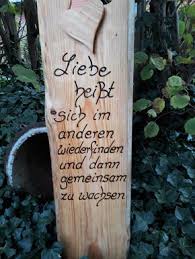 Liebe
heißt
sich im
anderen
wiederfinden
und dann
gemeinsam
zu wachsen